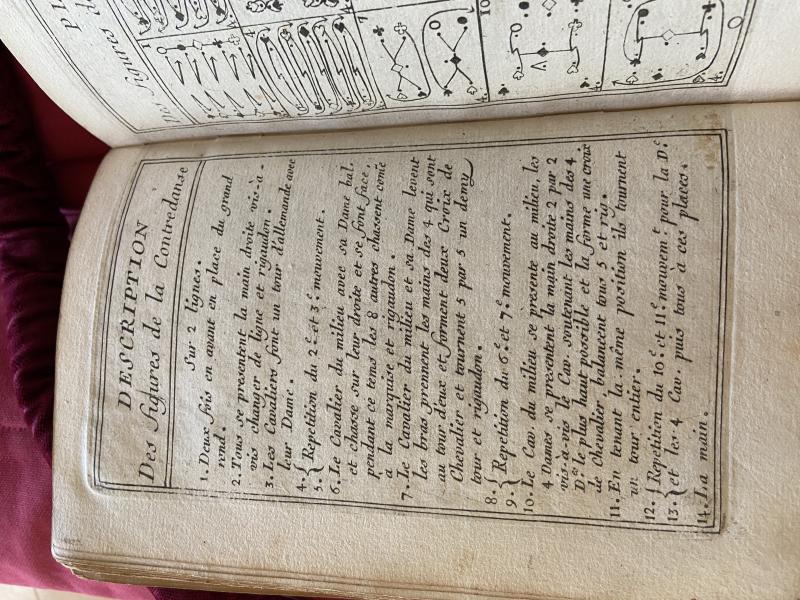 DESCRIPTION
Des figures de la Contredanse
Sur 2 lignes.
1. Deux fois en avant en place du grand
rond.
2. Tous se presentent la main droite vis-à-
vis changer de ligne et rigaudon.
3. Les Cavaliers font un tour d'allemande avec
leur Dame.
4. { Repetition du 2e et 3e mouvement.
5.
6. Le Cavalier du milieu avec sa Dame bal.
et chasse sur leur droite et se font face,
pendant ce tems les 8 autres chassent come
a la marquise et rigaudon.
7. Le Cavalier du milieu et sa Dame levent
les bras prennent les mains des 4 qui sont
au tour d'eux et forment deux Croix de
Chevalier et tournent 5 par 5 un demy
tour et rigaudon.
8. { Repetition du 6e et 7e mouvement.
9.
10. Le Cav. du milieu se presente au milieu, les
4 Dames se presentent la main droite 2 par 2
vis-a-vis le Cav. soutenant les mains des 4
Des le plus haut possible et la forme une croix
de Chevalier balancent tous 5 et rig.
11. En tenant la même position ils tournent
un tour entier.
12. { Repetition du 10e et 11e mouvemt pour la De
13. et les 4 Cav. puis tous à ces places.
14. La main.
Des figures